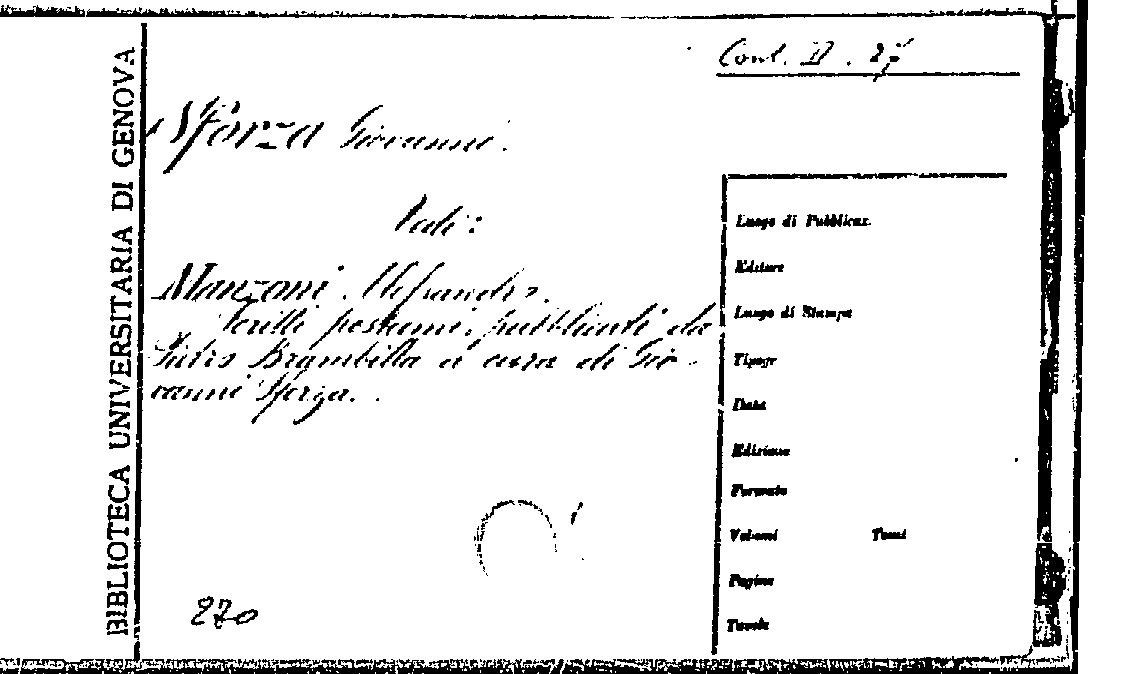 BIBLIOTECA UNIVERSITARIA DI GENOVA
Sforza Giovanni.
Vedi:
Manzoni Alessandro.
Scritti postumi, pubblicati da
Pietro Brambilla a cura di Gio-
vanni Sforza.
270
Luogo di Pubblicaz.
Editore
Luogo di Stampa
Tipogr
Data
Edizione
Formato
Volumi Tomi
Pagine
Tavole